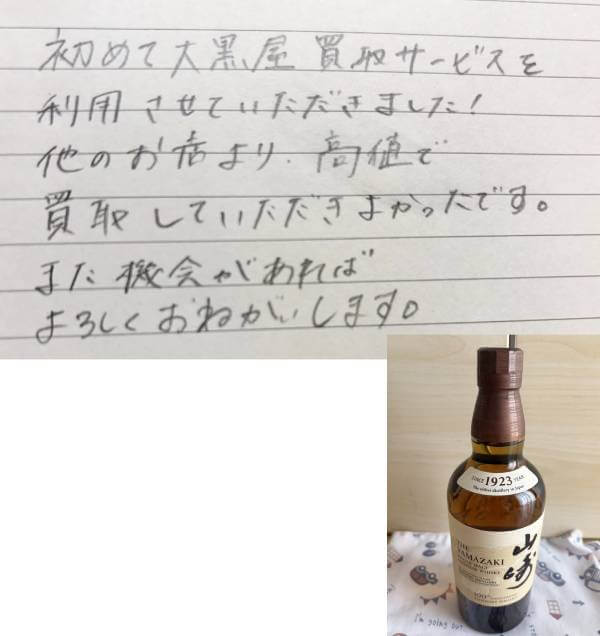 初めて大黒屋 買取サービスを
利用させていただきました!
他のお店より、高値で
買取していただきよかったです。
また機会があれば
よろしくおねがいします。
SINCE 1923 YEAR
The oldest distillery in Japan
山崎
THE
YAMAZAKI
SINGLE MALT
JAPANESE WHISKY
100th ANNIVERSARY
I'm going out